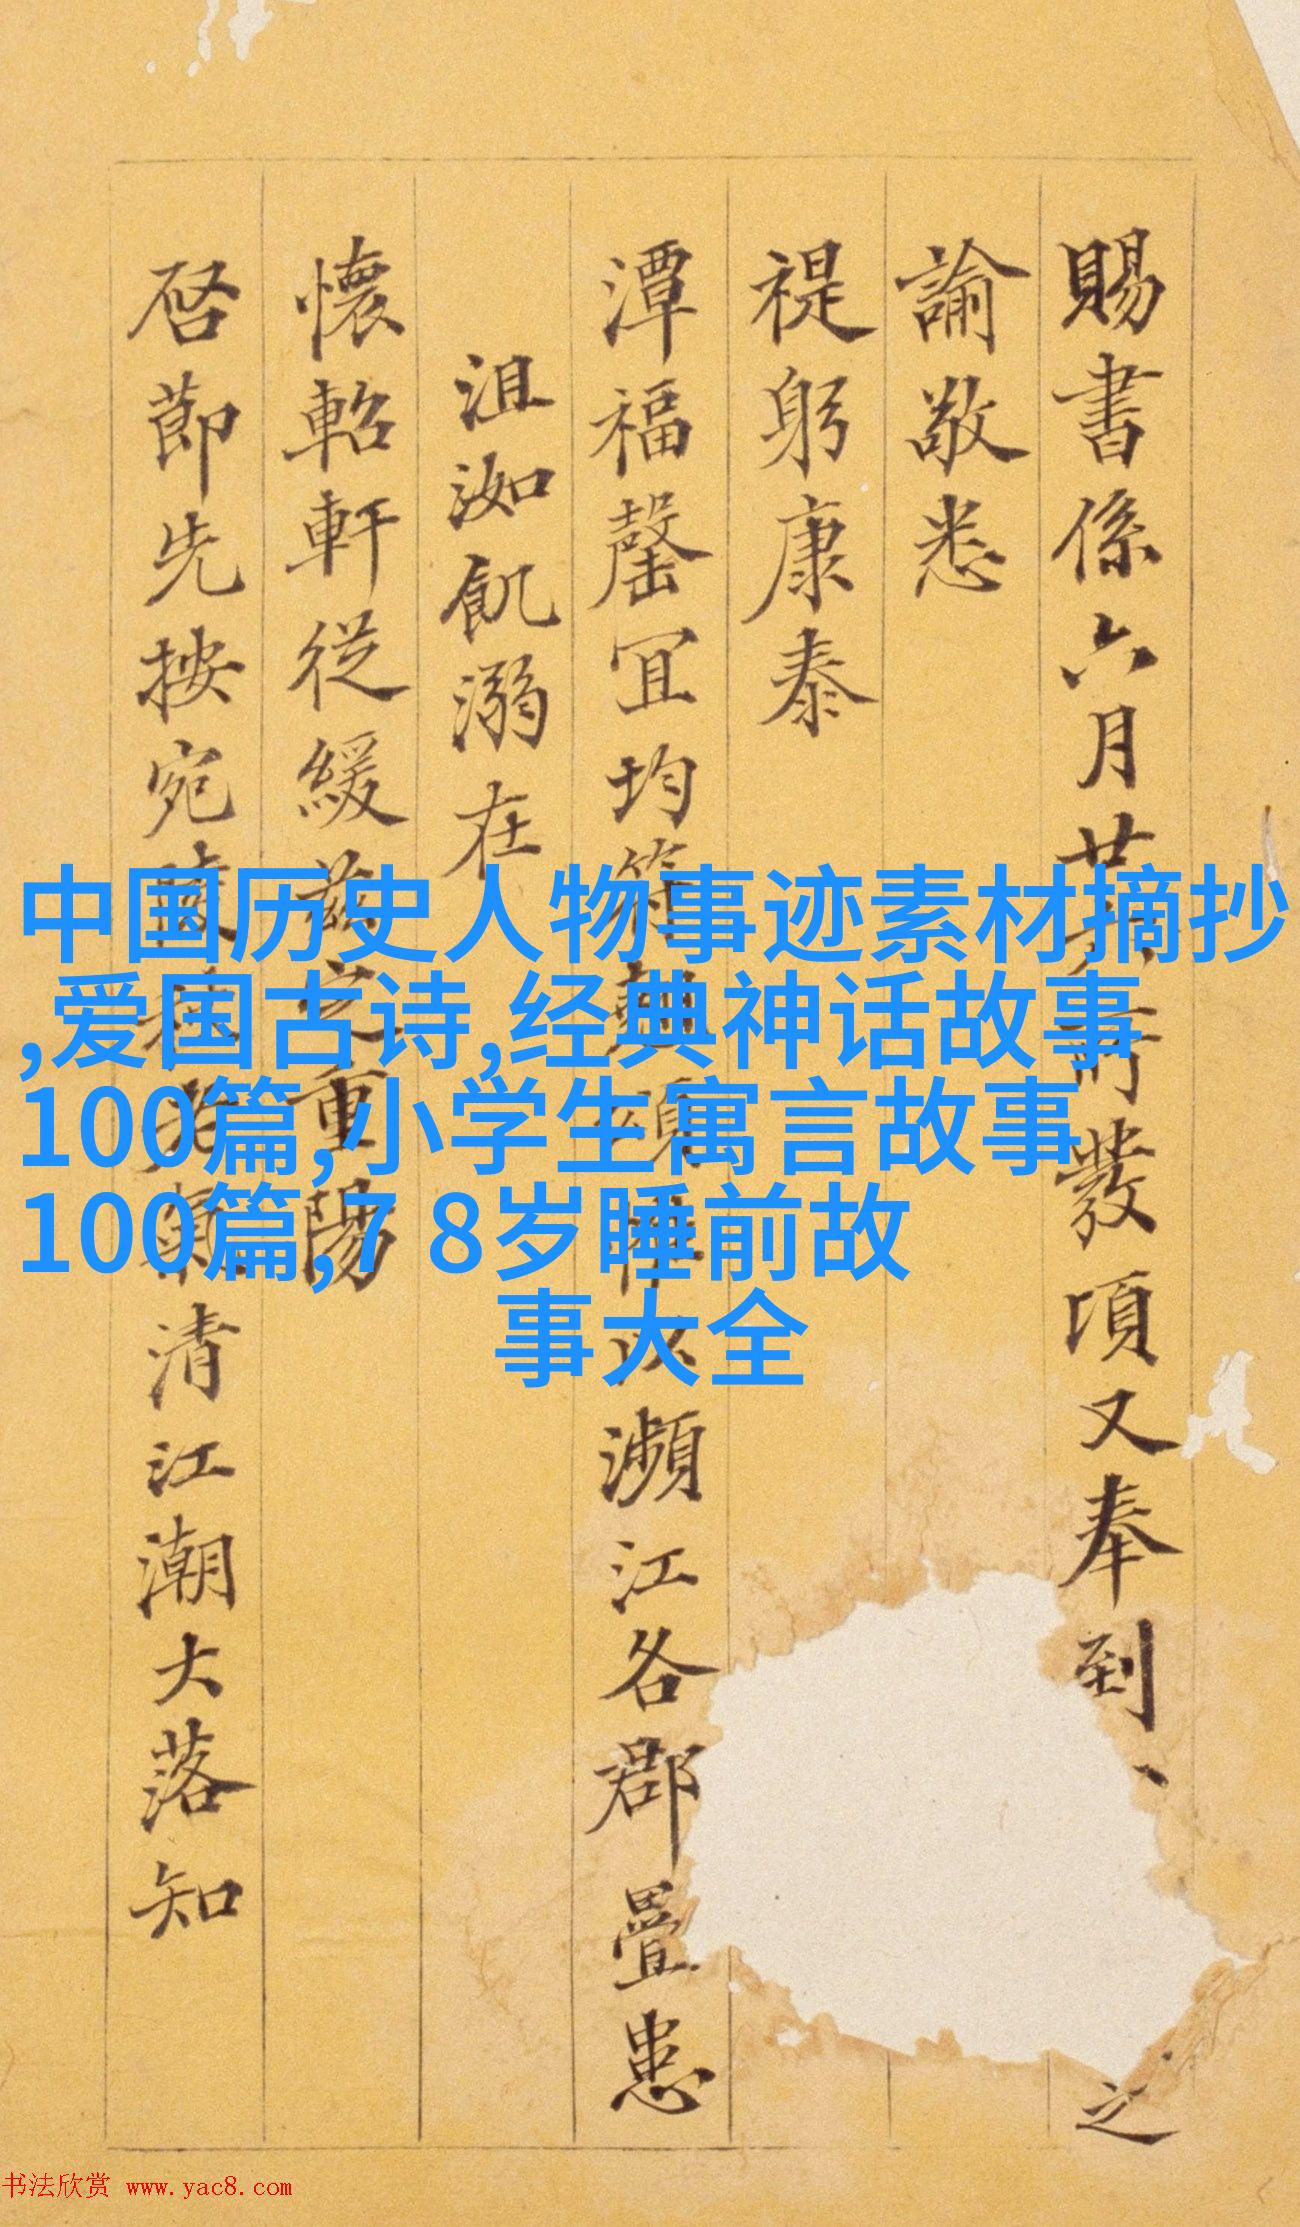 賜書係六月廿
發項又奉到
之
諭敬悉
禔躬康泰
潭福罄宜均
瀕江各郡疊患
沮洳飢溺在
懷軺軒從緩
重陽
启節先按宛
清江潮大落知
中国历史人物事迹素材摘抄
,爱国古诗,经典神话故事
100篇,小学生寓言故事
100篇,7 8岁睡前故
事大全
书法欣赏 www.yac8.com